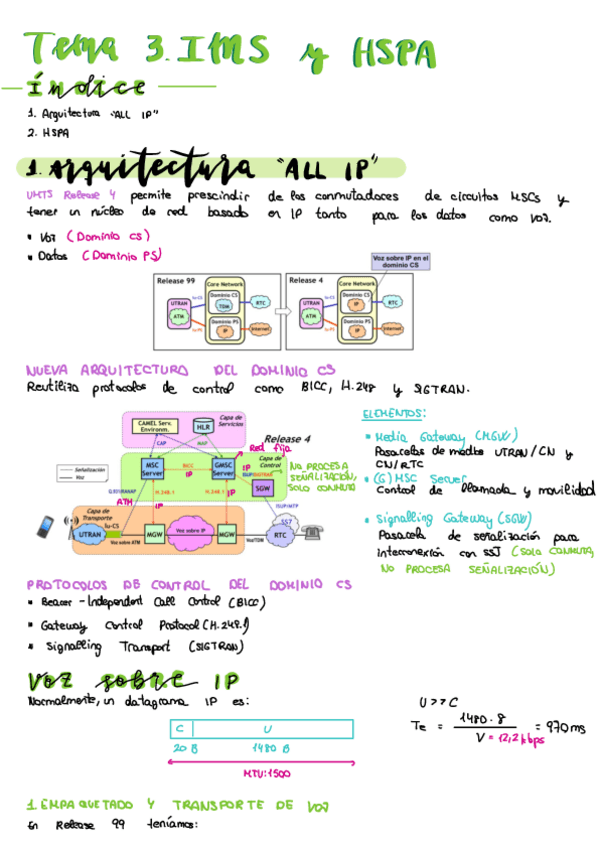 Tema 3. IMS y HSPA
índice
1. Arquitectura "ALL IP"
2. HSPA
1. Arquitectura "ALL IP"
UMTS Release 4 permite prescindir de los conmutadores de circuitos MSCs y
tener un núcleo de red basado en IP tanto para los datos como voz.
• Voz (Dominio CS)
• Datos (Dominio PS)
Voz sobre IP en el
dominio CS
Release 99
Core Network
Dominio CS
TDM
UTRAN
ATM
Iu-CS
Iu-PS
Dominio PS
IP
RTC
Internet
Release 4
Core Network
Dominio CS
IP
UTRAN
ATM
Iu-CS
Iu-PS
Dominio PS
IP
RTC
Internet
NUEVA ARQUITECTURA DEL DOMINIO CS
Reutiliza protocolos de control como BICC, H.248 y SIGTRAN.
CAMEL Serv.
Environm.
HLR
Capa de
Servicios
CAP
MAP
Release 4
Red fija
Señalización
Voz
MSC
Server
BICC
IP
GMSC
Server
Capa de
Control
IP
ISUP/SIGTRAN
SGW
NO PROCESA
SEÑALIZACIÓN,
SOLO CONMUTA
G.931/RANAP
ATM
H.248.1
IP
H.248.1
ISUP/MTP
Capa de
Transporte
Iu-CS
UTRAN
Voz sobre ATM
MGW
Voz sobre IP
MGW
Voz/TDM
SS7
RTC
ELEMENTOS:
• Media Gateway (MGW)
Pasarelas de medios UTRAN/CN y
CN/RTC
• (G)MSC Server
Control de llamada y movilidad
• Signalling Gateway (SGW)
Pasarela de señalización para
interconexión con SS7 (SOLO CONMUTA,
NO PROCESA SEÑALIZACIÓN)
PROTOCOLOS DE CONTROL DEL DOMINIO CS
• Bearer-Independent Call Control (BICC)
• Gateway Control Protocol (H.248.1)
• Signalling Transport (SIGTRAN)
Voz sobre IP
Normalmente, un datagrama IP es:
C U
20 B 1480 B
MTU:1500
U >> C
Te = 1480 · 8 / V = 12,2 kbps = 970 ms
1. EMPAQUETADO Y TRANSPORTE DE VOZ
En Release 99 teníamos: